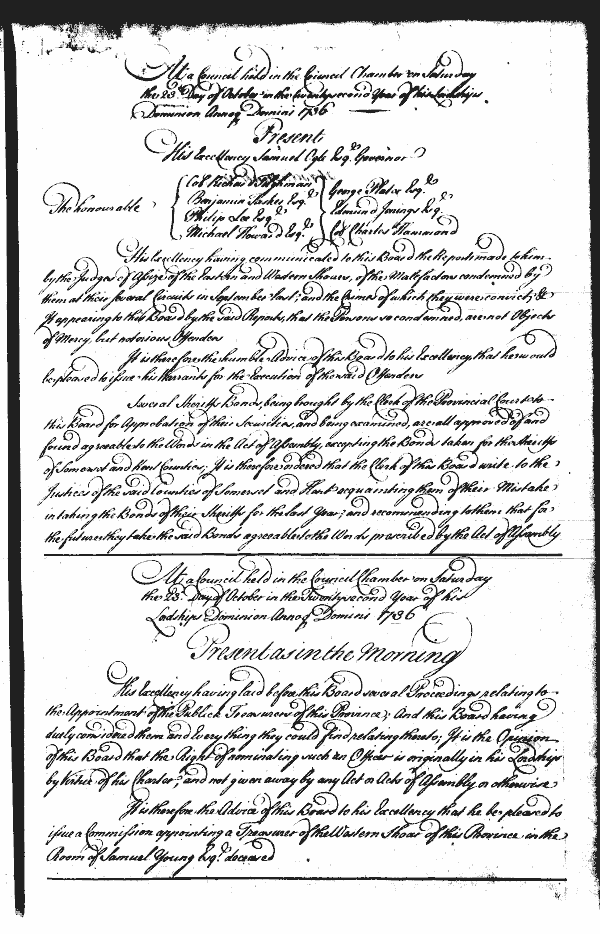 At a Council held in the Council Chamber on Saturday
the 23d. Day of October in the twenty second Year of his Lordships
Dominion Annoq Domini 1736
Present
His Excellency Samuel Ogle Esqr. Governor
The honourable
Col Richard Tilghman
Benjamin Tasker Esqr.
Philip Lee Esqr.
Michael Howard Esqr.
George Plater Esqr.
Edmund Jenings Esqr.
Col Charles Hammond
His Excellency having communicated to this Board the Reports made to him
by the Judges of Assize of the Eastern and Western Shores, of the Malefactors condemned by
them at their several Circuits in September last; and the Crimes of which they were convict; &
It appearing to this Board by the said Reports, that the Persons so condemned, are not Objects
of Mercy, but notorious Offenders
It is therefore the humble Advice of this Board to his Excellency that he would
be pleased to issue his Warrants for the Execution of the said Offenders
Several Sheriffs Bonds, being brought by the Clerk of the Provincial Court to
this Board for Approbation of their Securities, and being examined, are all approved of and
found agreeable to the Words in the Act of Assembly, excepting the Bonds taken for the Sheriffs
of Somerset and Kent Counties; It is therefore ordered that the Clerk of this Board write to the
Justices of the said Counties of Somerset and Kent acquainting them of their Mistake
in taking the Bonds of their Sheriffs for the last Year; and recommending to them that for
the future they take the said Bonds agreeable to the Words prescribed by the Act of Assembly
At a Council held in the Council Chamber on Saturday
the 23: Day of October in the Twenty second Year of his
Lordships Dominion Annoq Domini 1736
Present as in the Morning
His Excellency having laid before this Board several Proceedings relating to
the Appointment of the Publick Treasurers of this Province; And this Board having
duly considered them and every thing they could find relating thereto; It is the Opinion
of this Board that the Right of nominating such an Officer is originally in his Lordship
by Virtue of his Charter, and not given away by any Act or Acts of Assembly or otherwise
It is therefore the Advice of this Board to his Excellency that he be pleased to
issue a Commission appointing a Treasurer of the Western Shoar of this Province in the
Room of Samuel Young Esqr. deceased